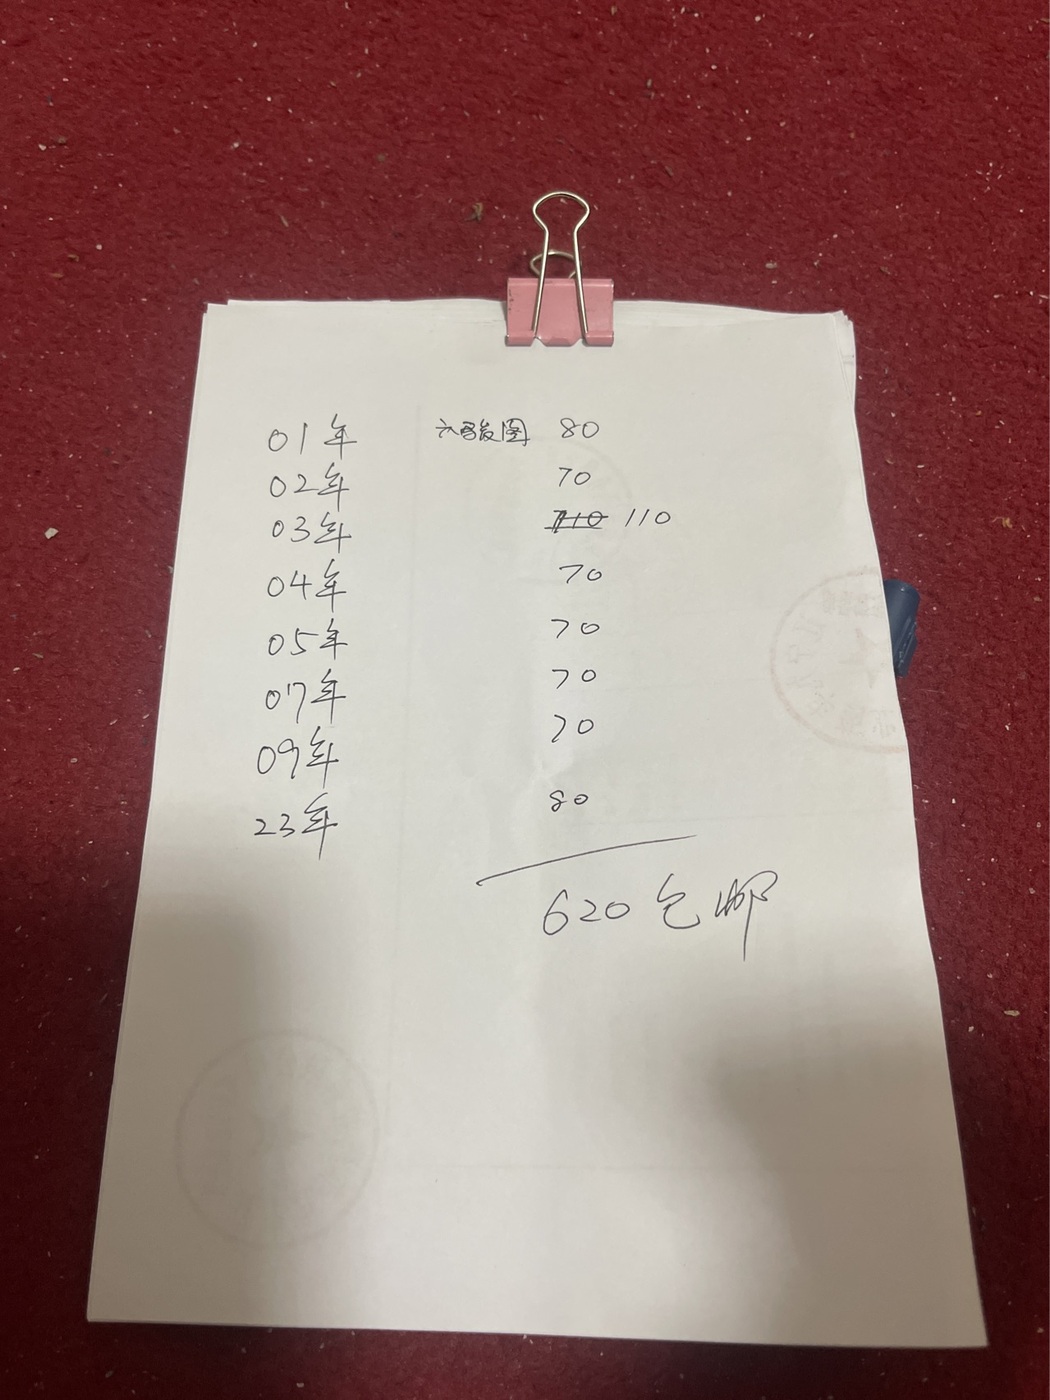 01年 六骏图 80
02年 70
03年 110
04年 70
05年 70
07年 70
09年 70
23年 80
620 包邮